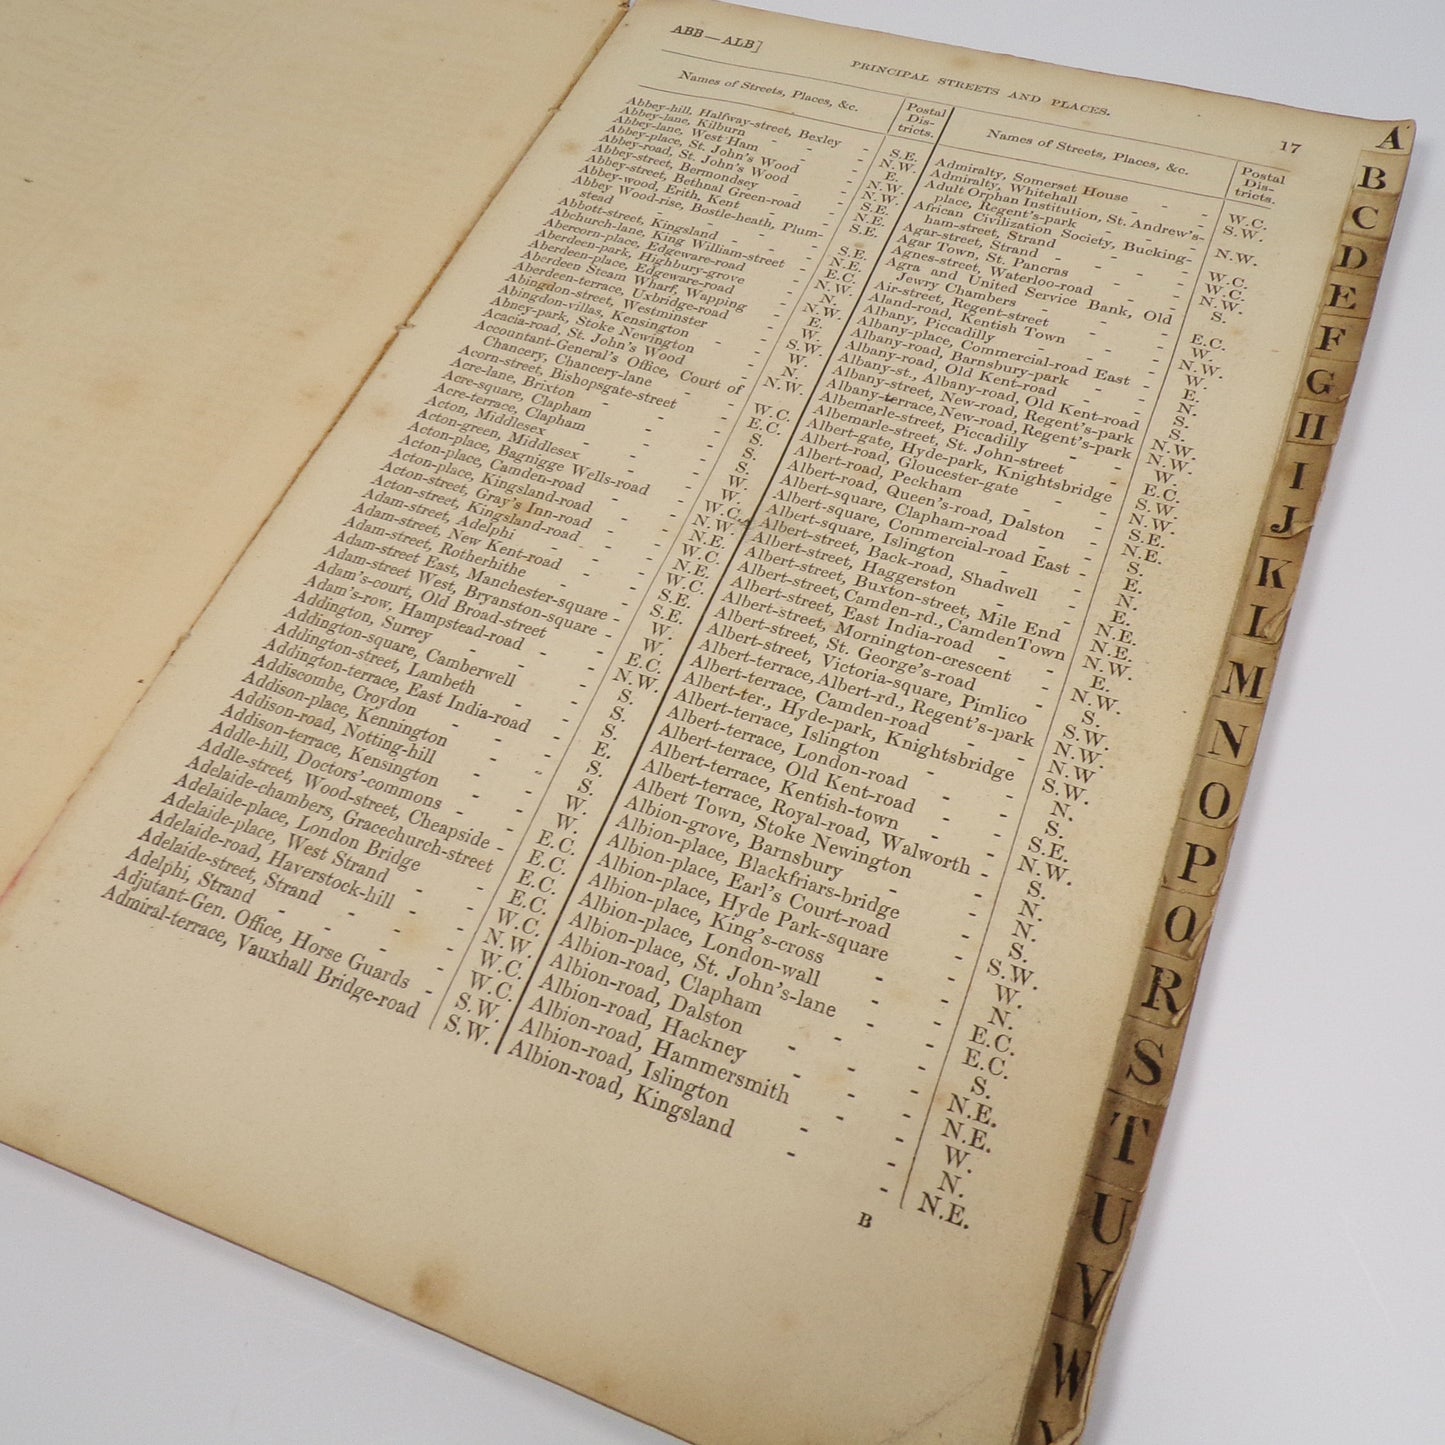 ABB—ALB]
PRINCIPAL STREETS AND PLACES.
17
Names of Streets, Places, &c.
Postal Dis-
tricts.
Abbey-hill, Halfway-street, Bexley - S.E.
Abbey-lane, Kilburn - - N.W.
Abbey-lane, West Ham - - E.
Abbey-place, St. John's Wood - N.W.
Abbey-road, St. John's Wood - N.W.
Abbey-street, Bermondsey - S.E.
Abbey-street, Bethnal Green-road - N.E.
Abbey-wood, Erith, Kent - S.E.
Abbey Wood-rise, Bostle-heath, Plum-
stead - - - S.E.
Abbott-street, Kingsland - - N.E.
Abchurch-lane, King William-street - E.C.
Abercorn-place, Edgeware-road - N.W.
Aberdeen-park, Highbury-grove - N.
Aberdeen-place, Edgeware-road - N.W.
Aberdeen Steam Wharf, Wapping - E.
Aberdeen-terrace, Uxbridge-road - W.
Abingdon-street, Westminster - S.W.
Abingdon-villas, Kensington - W.
Abney-park, Stoke Newington - N.
Acacia-road, St. John's Wood - N.W.
Accountant-General's Office, Court of
Chancery, Chancery-lane - W.C.
Acorn-street, Bishopsgate-street - E.C.
Acre-lane, Brixton - - S.
Acre-square, Clapham - - S.
Acre-terrace, Clapham - - S.
Acton, Middlesex - - W.
Acton-green, Middlesex - - W.
Acton-place, Bagnigge Wells-road - W.C.
Acton-place, Camden-road - N.W.
Acton-place, Kingsland-road - N.E.
Acton-street, Gray's Inn-road - W.C.
Acton-street, Kingsland-road - N.E.
Adam-street, Adelphi - - W.C.
Adam-street, New Kent-road - S.E.
Adam-street, Rotherhithe - S.E.
Adam-street East, Manchester-square - W.
Adam-street West, Bryanston-square - W.
Adam's-court, Old Broad-street - E.C.
Adam's-row, Hampstead-road - N.W.
Addington, Surrey - - S.
Addington-square, Camberwell - S.
Addington-street, Lambeth - S.
Addington-terrace, East India-road - E.
Addiscombe, Croydon - - S.
Addison-place, Kennington - S.
Addison-road, Notting-hill - W.
Addison-terrace, Kensington - W.
Addle-hill, Doctors'-commons - E.C.
Addle-street, Wood-street, Cheapside - E.C.
Adelaide-chambers, Gracechurch-street E.C.
Adelaide-place, London Bridge - E.C.
Adelaide-place, West Strand - W.C.
Adelaide-road, Haverstock-hill - N.W.
Adelaide-street, Strand - - W.C.
Adelphi, Strand - - - W.C.
Adjutant-Gen. Office, Horse Guards - S.W.
Admiral-terrace, Vauxhall Bridge-road S.W.
Names of Streets, Places, &c.
Postal Dis-
tricts.
Admiralty, Somerset House - W.C.
Admiralty, Whitehall - - S.W.
Adult Orphan Institution, St. Andrew's-
place, Regent's-park - - N.W.
African Civilization Society, Bucking-
ham-street, Strand - - W.C.
Agar-street, Strand - - W.C.
Agar Town, St. Pancras - - N.W.
Agnes-street, Waterloo-road - S.
Agra and United Service Bank, Old
Jewry Chambers - - E.C.
Air-street, Regent-street - - W.
Aland-road, Kentish Town - N.W.
Albany, Piccadilly - - W.
Albany-place, Commercial-road East - E.
Albany-road, Barnsbury-park - N.
Albany-road, Old Kent-road - S.
Albany-st., Albany-road, Old Kent-road S.
Albany-street, New-road, Regent's-park N.W.
Albany-terrace, New-road, Regent's-park N.W.
Albemarle-street, Piccadilly - W.
Albemarle-street, St. John-street - E.C.
Albert-gate, Hyde-park, Knightsbridge S.W.
Albert-road, Gloucester-gate - N.W.
Albert-road, Peckham - - S.E.
Albert-road, Queen's-road, Dalston - N.E.
Albert-square, Clapham-road - S.
Albert-square, Commercial-road East - E.
Albert-square, Islington - - N.
Albert-street, Back-road, Shadwell - E.
Albert-street, Haggerston - N.E.
Albert-street, Buxton-street, Mile End N.E.
Albert-street, Camden-rd., Camden Town N.W.
Albert-street, East India-road - E.
Albert-street, Mornington-crescent - N.W.
Albert-street, St. George's-road - S.
Albert-street, Victoria-square, Pimlico S.W.
Albert-terrace, Albert-rd., Regent's-park N.W.
Albert-terrace, Camden-road - N.W
Albert-ter., Hyde-park, Knightsbridge S.W.
Albert-terrace, Islington - - N.
Albert-terrace, London-road - S.
Albert-terrace, Old Kent-road - S.E.
Albert-terrace, Kentish-town - N.W.
Albert-terrace, Royal-road, Walworth - S.
Albert Town, Stoke Newington - N.
Albion-grove, Barnsbury - N.
Albion-place, Blackfriars-bridge - S.
Albion-place, Earl's Court-road - S.W.
Albion-place, Hyde Park-square - W.
Albion-place, King's-cross - N.
Albion-place, London-wall - E.C.
Albion-place, St. John's-lane - E.C.
Albion-road, Clapham - - S.
Albion-road, Dalston - - N.E.
Albion-road, Hackney - - N.E.
Albion-road, Hammersmith - W.
Albion-road, Islington - - N.
Albion-road, Kingsland - - N.E.
B
A
B
C
D
E
F
G
H
I
J
K
L
M
N
O
P
Q
R
S
T
U
V
W